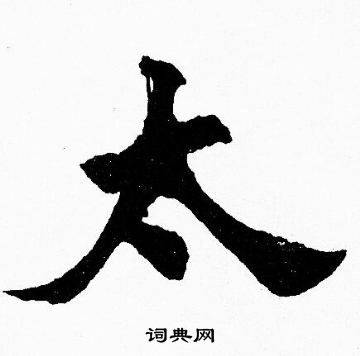 太
词典网